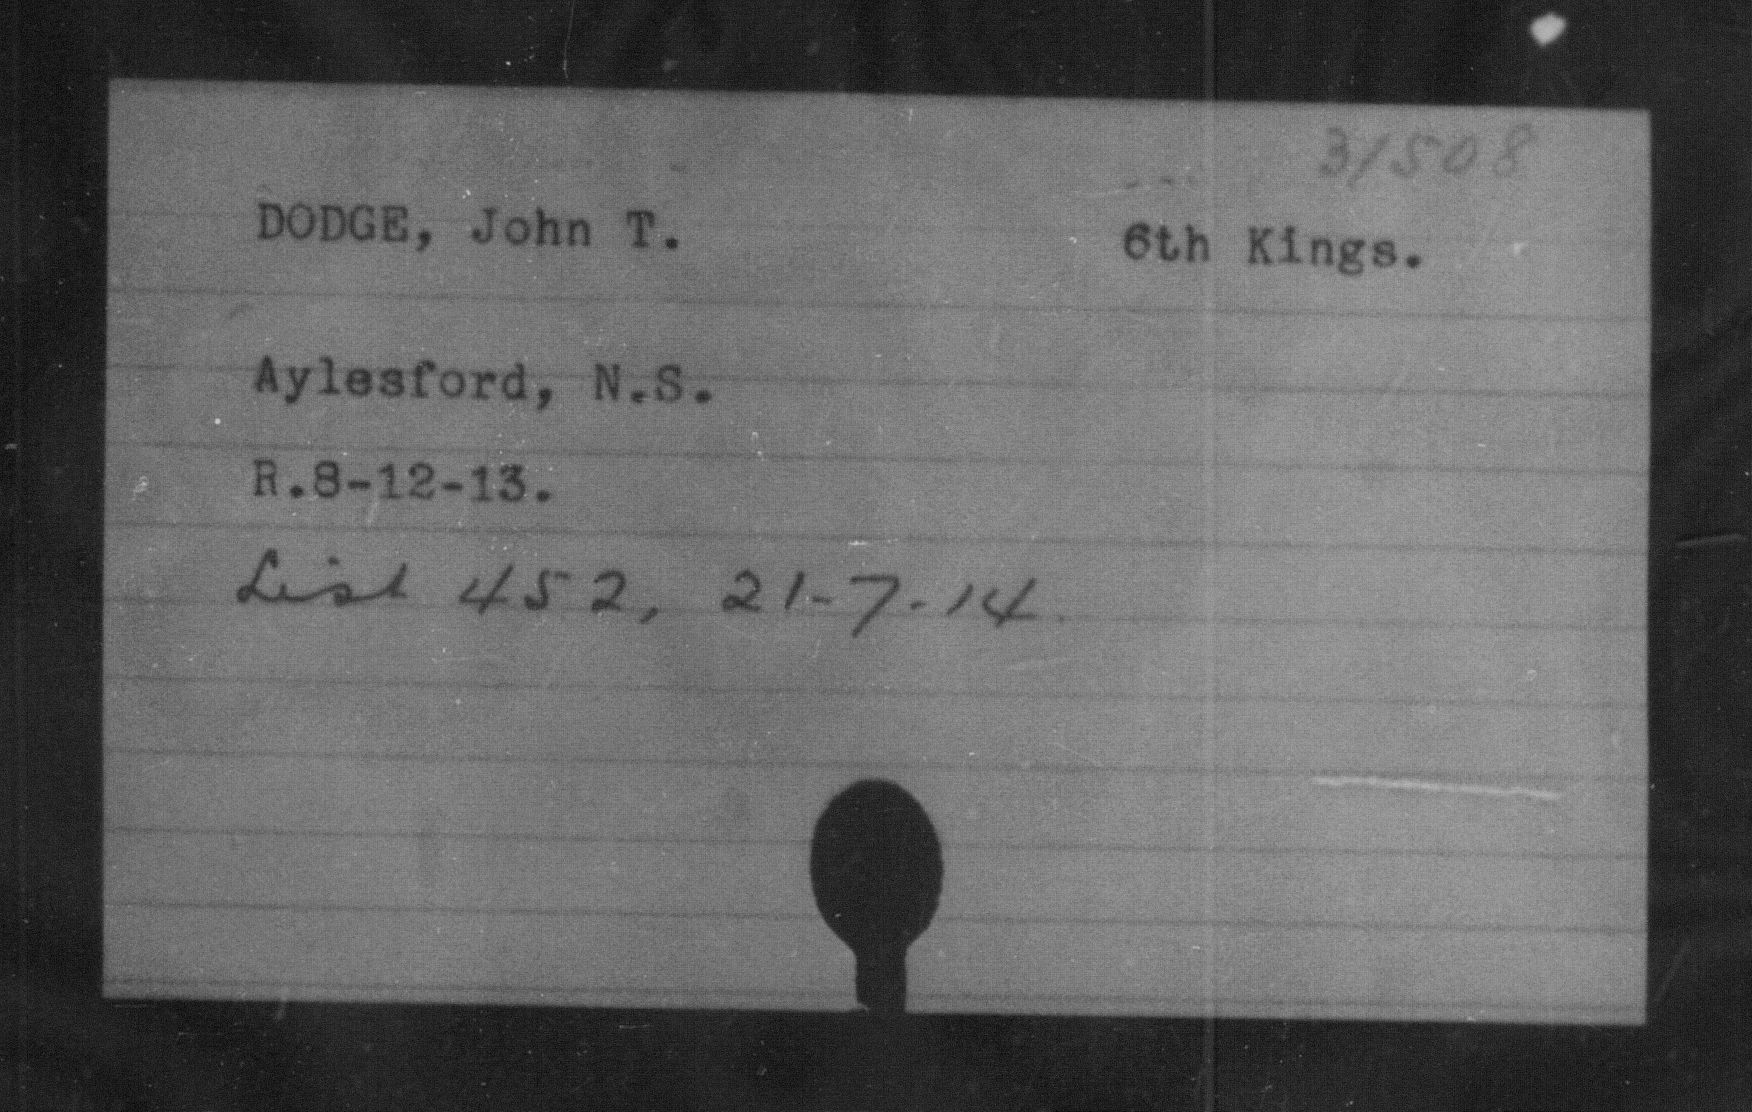 31508
DODGE, John T. 6th Kings.
Aylesford, N.S.
R.8-12-13.
List 452, 21-7-14.